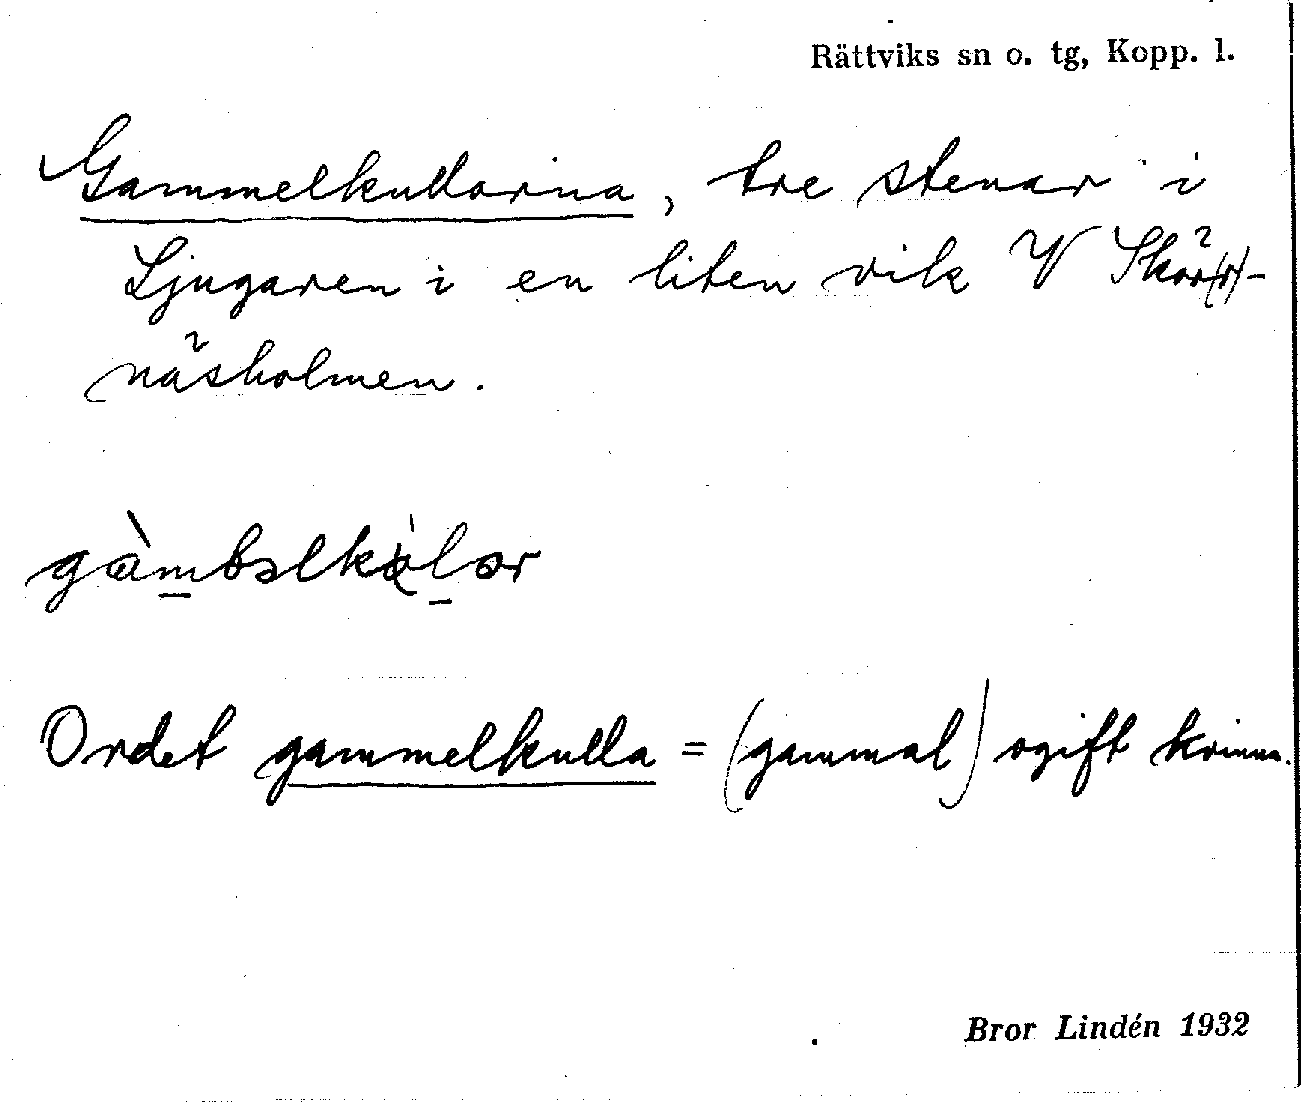 Rättviks sn o. tg, Kopp. l.
Gammelkullorna, tre stenar i
Ljugaren i en liten vik V Skör(r)-
näsholmen.
gàmbəlkùlər
Ordet gammelkulla = (gammal) ogift kvinna.
Bror Lindén 1932